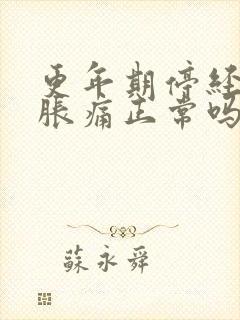 更年期停经
胀痛正常吗
蘇永舜